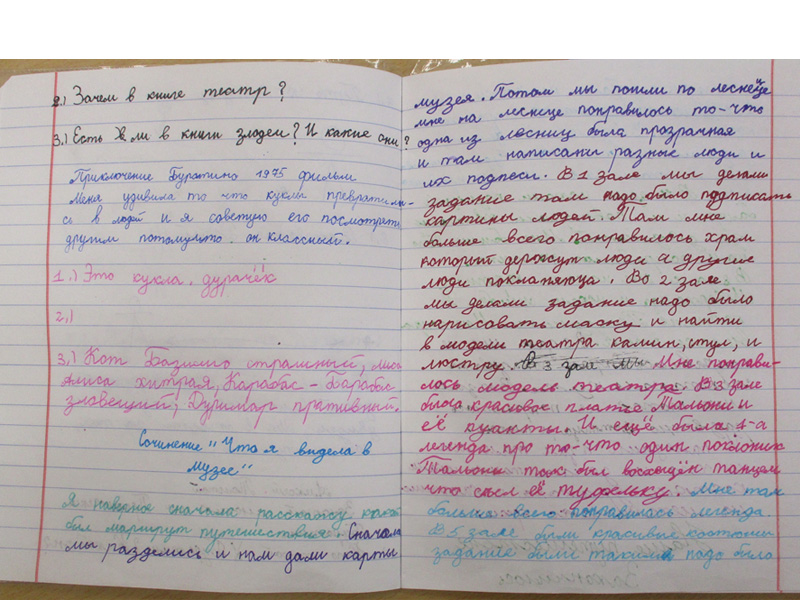 2.) Зачем в книге театр?
3.) Есть ли в книги злодеи? И какие они?
Приключение Буратино 1975 фильм
Меня удивила то что куклы превратили-
сь в людей и я советую его посмотреть
другим потомучто он классный.
1.) Это кукла дурачёк
2.)
3.) Кот Базилио страшный, лиса
Алиса хитрая, Карабас-Барабас
зловещий, Дуримар противный.
Сочинение "Что я видела в
музее"
Я наверно сначала расскажу какой
был маршрут путешествия. Сначала
мы разделись и нам дали карты
музея. Потом мы пошли по леснеце
мне на леснеце понравилось то-что
одна из лесниц была прозрачная
и там написаны разные люди и
их подписи. В 1 зале мы делали
задание там надо было подписать
картины людей. Там мне
больше всего понравилось храм
который держут люди а другие
люди покланяюца. Во 2 зале
мы делали задание надо было
нарисовать маску и найти
в модели театра камин, стул, и
люстру. В 3 зале мы Мне понрави-
лось модель театра. В 3 зале
было красивое платье Тальони и
её пуанты. И ещё была 1-а
легенда про то-что один поклоник
Тальони так был восхищён танцем
что съел её туфельку. Мне там
больше всего понравилась легенда
В 5 зале были красивые костюмы
задание были такими надо было